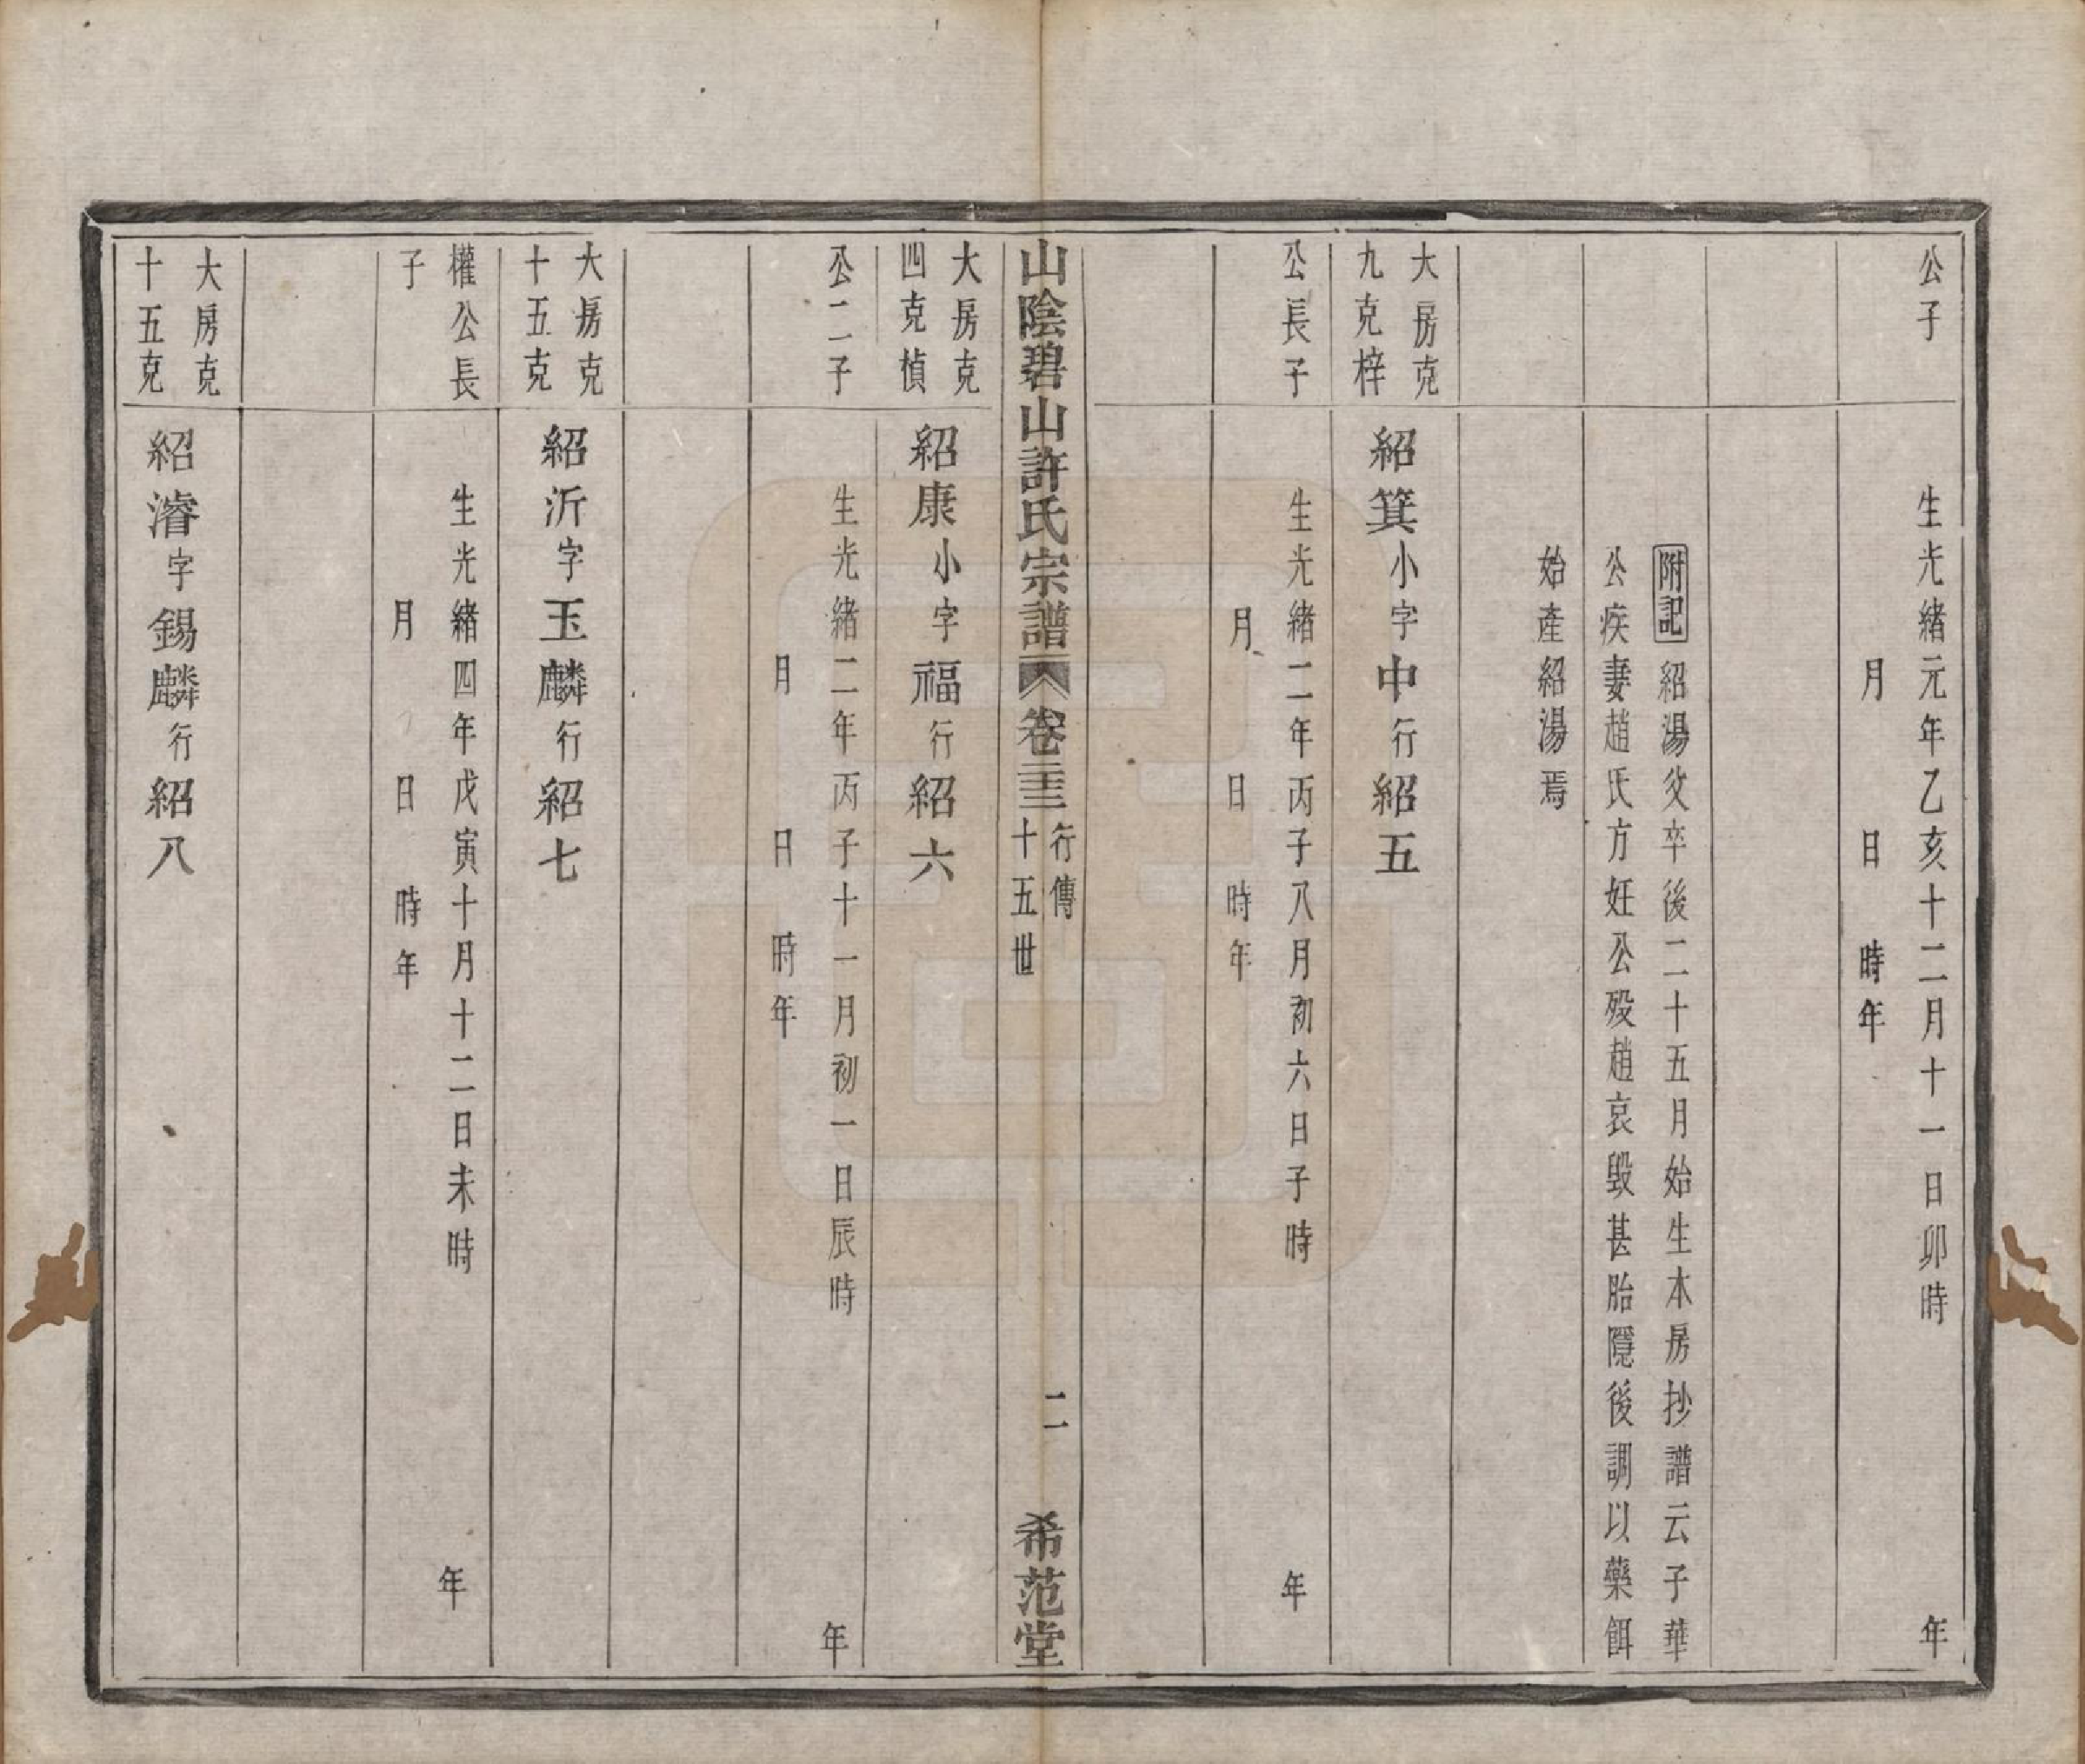 公子
生光緒元年乙亥十二月十一日卯時 年
月 日 時年
附記 紹湯父卒後二十五月始生本房抄譜云子華
公疾妻趙氏方妊公歿趙哀毀甚胎隱後調以藥餌
始產紹湯焉
大房克
九克梓
紹箕小字中行紹五
公長子
生光緒二年丙子八月初六日子時 年
月 日 時年
山陰碧山許氏宗譜 卷二十三 行傳 十五世 二 希范堂
大房克
四克楨
紹康小字福行紹六
公二子
生光緒二年丙子十一月初一日辰時 年
月 日 時年
大房克
十五克
紹沂字玉麟行紹七
權公長
子
生光緒四年戊寅十月十二日未時 年
月 日 時年
大房克
十五克
紹濬字錫麟行紹八